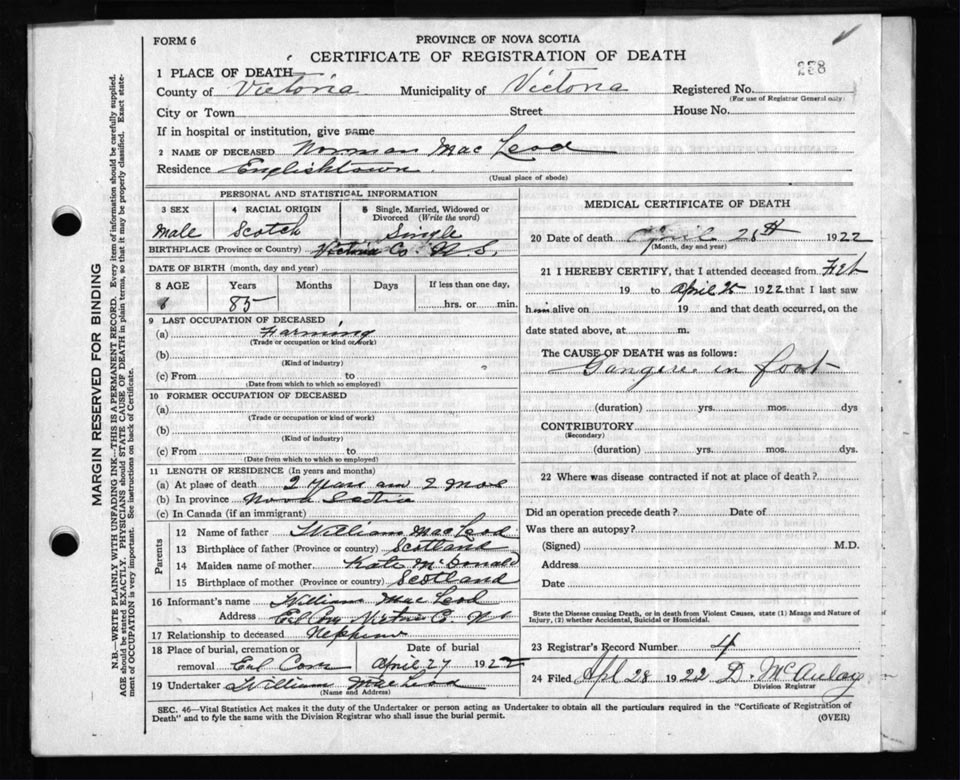 FORM 6
PROVINCE OF NOVA SCOTIA
CERTIFICATE OF REGISTRATION OF DEATH
258
1 PLACE OF DEATH
County of Victoria Municipality of Victoria Registered No.
(For use of Registrar General only)
City or Town Street House No.
If in hospital or institution, give name
2 NAME OF DECEASED Norman Mac Leod
Residence Englishtown
(Usual place of abode)
PERSONAL AND STATISTICAL INFORMATION
3 SEX 4 RACIAL ORIGIN 5 Single, Married, Widowed or Divorced (Write the word)
Male Scotch Single
BIRTHPLACE (Province or Country) Victoria Co. N. S.
DATE OF BIRTH (month, day and year)
8 AGE Years Months Days If less than one day,
85 hrs. or min.
9 LAST OCCUPATION OF DECEASED
(a) Farming
(Trade or occupation or kind of work)
(b)
(Kind of industry)
(c) From to
(Date from which to which so employed)
10 FORMER OCCUPATION OF DECEASED
(a)
(Trade or occupation or kind of work)
(b)
(Kind of industry)
(c) From to
(Date from which to which so employed)
11 LENGTH OF RESIDENCE (In years and months)
(a) At place of death 2 years am 2 Mos
(b) In province Nova Scotia
(c) In Canada (if an immigrant)
Parents
12 Name of father William MacLeod
13 Birthplace of father (Province or country) Scotland
14 Maiden name of mother Kate McDonald
15 Birthplace of mother (Province or country) Scotland
16 Informant's name William Mac Leod
Address
17 Relationship to deceased Nephew
18 Place of burial, cremation or Date of burial
removal April 27 1922
19 Undertaker William MacLeod
(Name and Address)
MEDICAL CERTIFICATE OF DEATH
20 Date of death April 25th 1922
(Month, day and year)
21 I HEREBY CERTIFY, that I attended deceased from Feb
19 to April 25 1922 that I last saw
h alive on 19 and that death occurred, on the
date stated above, at m.
The CAUSE OF DEATH was as follows:
Gangrene in foot
(duration) yrs. mos. dys
CONTRIBUTORY
(Secondary)
(duration) yrs. mos. dys
22 Where was disease contracted if not at place of death?
Did an operation precede death? Date of
Was there an autopsy?
(Signed) M.D.
Address
Date
State the Disease causing Death, or in death from Violent Causes, state (1) Means and Nature of
Injury, (2) whether Accidental, Suicidal or Homicidal.
23 Registrar's Record Number 4
24 Filed Apl 28 1922 D. McAulay
Division Registrar
SEC. 46—Vital Statistics Act makes it the duty of the Undertaker or person acting as Undertaker to obtain all the particulars required in the "Certificate of Registration of
Death" and to fyle the same with the Division Registrar who shall issue the burial permit.
(OVER)
MARGIN RESERVED FOR BINDING
N.B.—WRITE PLAINLY WITH UNFADING INK—THIS IS A PERMANENT RECORD. Every item of information should be carefully supplied.
AGE should be stated EXACTLY. PHYSICIANS should STATE CAUSE OF DEATH in plain terms, so that it may be properly classified. Exact state-
ment of OCCUPATION is very important. See instructions on back of Certificate.